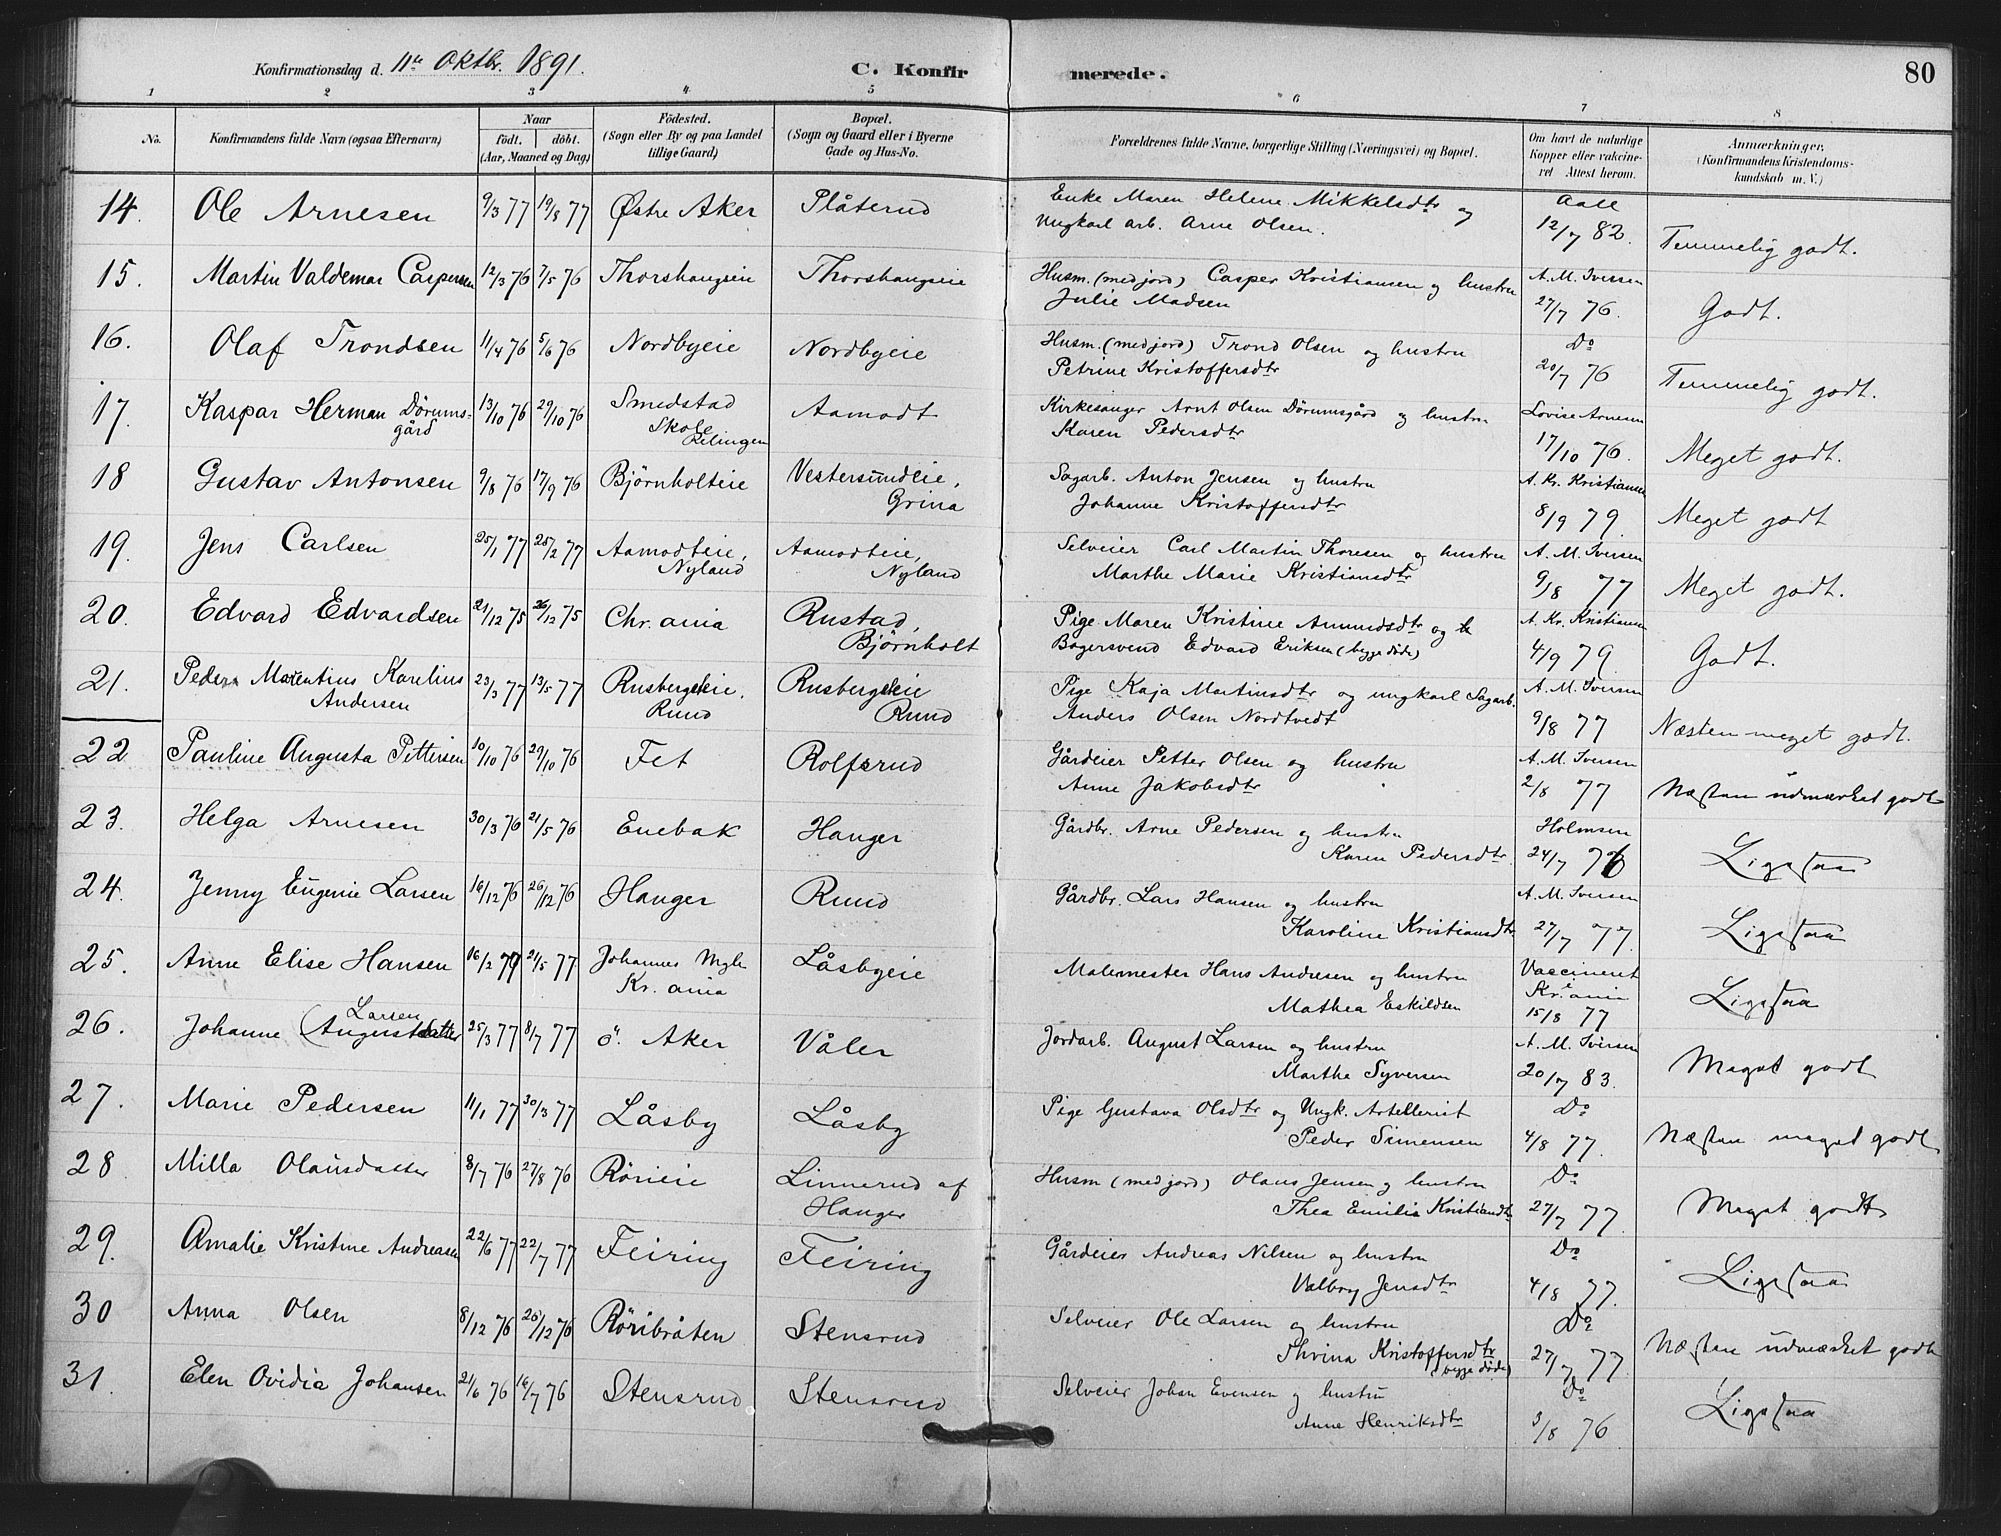 Konfirmationsdag d. 11te Oktbr. 1891. C. Konfirmerede. 80
1 2 3 4 5 6 7 8
No. Konfirmandens fulde Navn (ogsaa Efternavn) Naar födt. döbt. (Aar, Maaned og Dag) Födested. (Sogn eller By og paa Landet tillige Gaard) Bopæl. (Sogn og Gaard eller i Byerne Gade og Hus-No. Forældrenes fulde Navne, borgerlige Stilling (Næringsvei) og Bopæl. Om havt de naturlige Kopper eller vakcineret Attest herom. Anmærkninger. (Konfirmandens Kristendomskundskab m. V.)
14. Ole Arnesen 9/3 77 19/8 77 Østre Aker Plåterud Enke Maren Helene Mikkelsdtr og Aall
Ungkarl arb. Arne Olsen. 12/7 82. Temmelig godt.
15. Martin Valdemar Caspersen 12/3 76 7/5 76 Thorshaugeie Thorshaugeie Husm. (med jord) Casper Kristiansen og hustru A. M. Iversen
Julie Madsen 27/7 76. Godt.
16. Olaf Trondsen 11/4 76 5/6 76 Nordbyeie Nordbyeie Husm. (med jord) Trond Olsen og hustru Do
Petrine Kristoffersdtr 20/7 76 Temmelig godt.
17. Kaspar Herman Dørumsgård 13/10 76 29/10 76 Smedstad Skole Rælingen Aamodt Kirkesanger Arnt Olsen Dörumsgård og hustru Lovise Arnesen
Karen Pedersdtr 17/10 76. Meget godt.
18 Gustav Antonsen 9/8 76 17/9 76 Bjørnholteie Vestersundeie, Grina Sagarb. Anton Jensen og hustru A. Kr. Kristiansen
Johanne Kristoffersdtr 8/9 79. Meget godt
19. Jens Carlsen 25/1 77 25/2 77 Aamodteie, Nyland Aamodteie, Nyland Selveier Carl Martin Thoresen og hustru A. M. Iversen
Marthe Marie Kristiansdtr 9/8 77 Meget godt.
20. Edvard Edvardsen 21/12 75 26/12 75 Chr.ania Rustad, Bjørnholt Pige Maren Kristine Amundsdtr og A. Kr. Kristiansen
Bagersvend Edvard Eriksen (begge døde) 4/9 79. Godt.
21. Peder Marentius Karelius Andersen 23/3 77 13/5 77 Rusbergseie, Rund Rusbergseie Rund Pige Kaja Martinsdtr og ungkarl Sagarb. A. M. Iversen
Anders Olsen Nordtvedt 9/8 77 Næsten meget godt.
22 Pauline Augusta Pettersen 10/10 76 29/10 76 Fet Rolfsrud Gårdeier Petter Olsen og hustru A. M. Iversen
Anne Jakobsdtr 2/8 77 Næsten udmærket godt
23. Helga Arnesen 30/3 76 21/5 76 Enebak Hanger Gårdbr. Arne Pedersen og hustru Holmsen
Karen Pedersdtr. 24/7 76 Ligesaa
24. Jenny Eugenie Larsen 16/12 76 26/12 76 Hanger Rund Gårdbr. Lars Hansen og hustru A. M. Iversen
Karoline Kristiansdtr 27/7 77. Ligesaa
25. Anne Elise Hansen 16/2 77 21/5 77. Johannes Mgh. Kr.ania Låsbyeie Malemester Hans Andresen og hustru Vaccineret
Mathea Eskildsen Kr.ania 15/8 77 Ligesaa
26. Johanne (Augustdatter Larsen 25/3 77 8/7 77 ö. Aker Våler Jordarb. August Larsen og hustru A. M. Iversen
Marthe Syversen 20/7 83. Meget godt
27. Marie Pedersen 11/1 77 30/3 77 Låsby Låsby Pige Gustava Olsdtr og Ungk. Artellerist Do
Peder Simensen 4/8 77. Næsten meget godt
28 Milla Olausdatter 8/7 76 27/8 76 Röneie Linnerud af Hanger Husm (med jord) Olaus Jensen og hustru Do
Thea Emilie Kristiansdtr 27/7 77. Meget godt
29. Amalie Kristine Andreasen 22/6 77 22/7 77 Feiring Feiring Gårdeier Andreas Nilsen og hustru Do
Valborg Jensdtr 4/8 77. Ligesaa
30 Anna Olsen 8/12 76 26/12 76 Röribråten Stensrud Selveier Ole Larsen og hustru Do
Thrina Kristoffersdtr (begge døde) 27/7 77. Næsten udmærket godt
31. Elen Ovidia Johansen 21/6 76 16/7 76 Stensrud Stensrud Selveier Johan Evensen og hustru Do
Anne Henriksdtr 3/8 76 Ligesaa